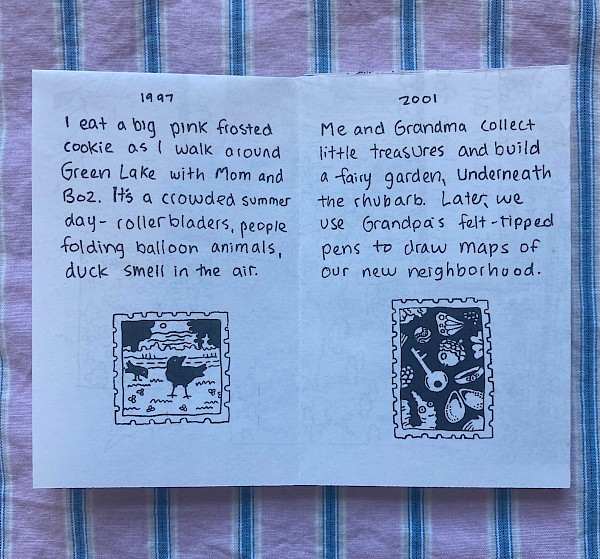 1997
I eat a big pink frosted
cookie as I walk around
Green Lake with Mom and
Boz. It's a crowded summer
day- rollerbladers, people
folding balloon animals,
duck smell in the air.
2001
Me and Grandma collect
little treasures and build
a fairy garden, underneath
the rhubarb. Later, we
use Grandpa's felt-tipped
pens to draw maps of
our new neighborhood.